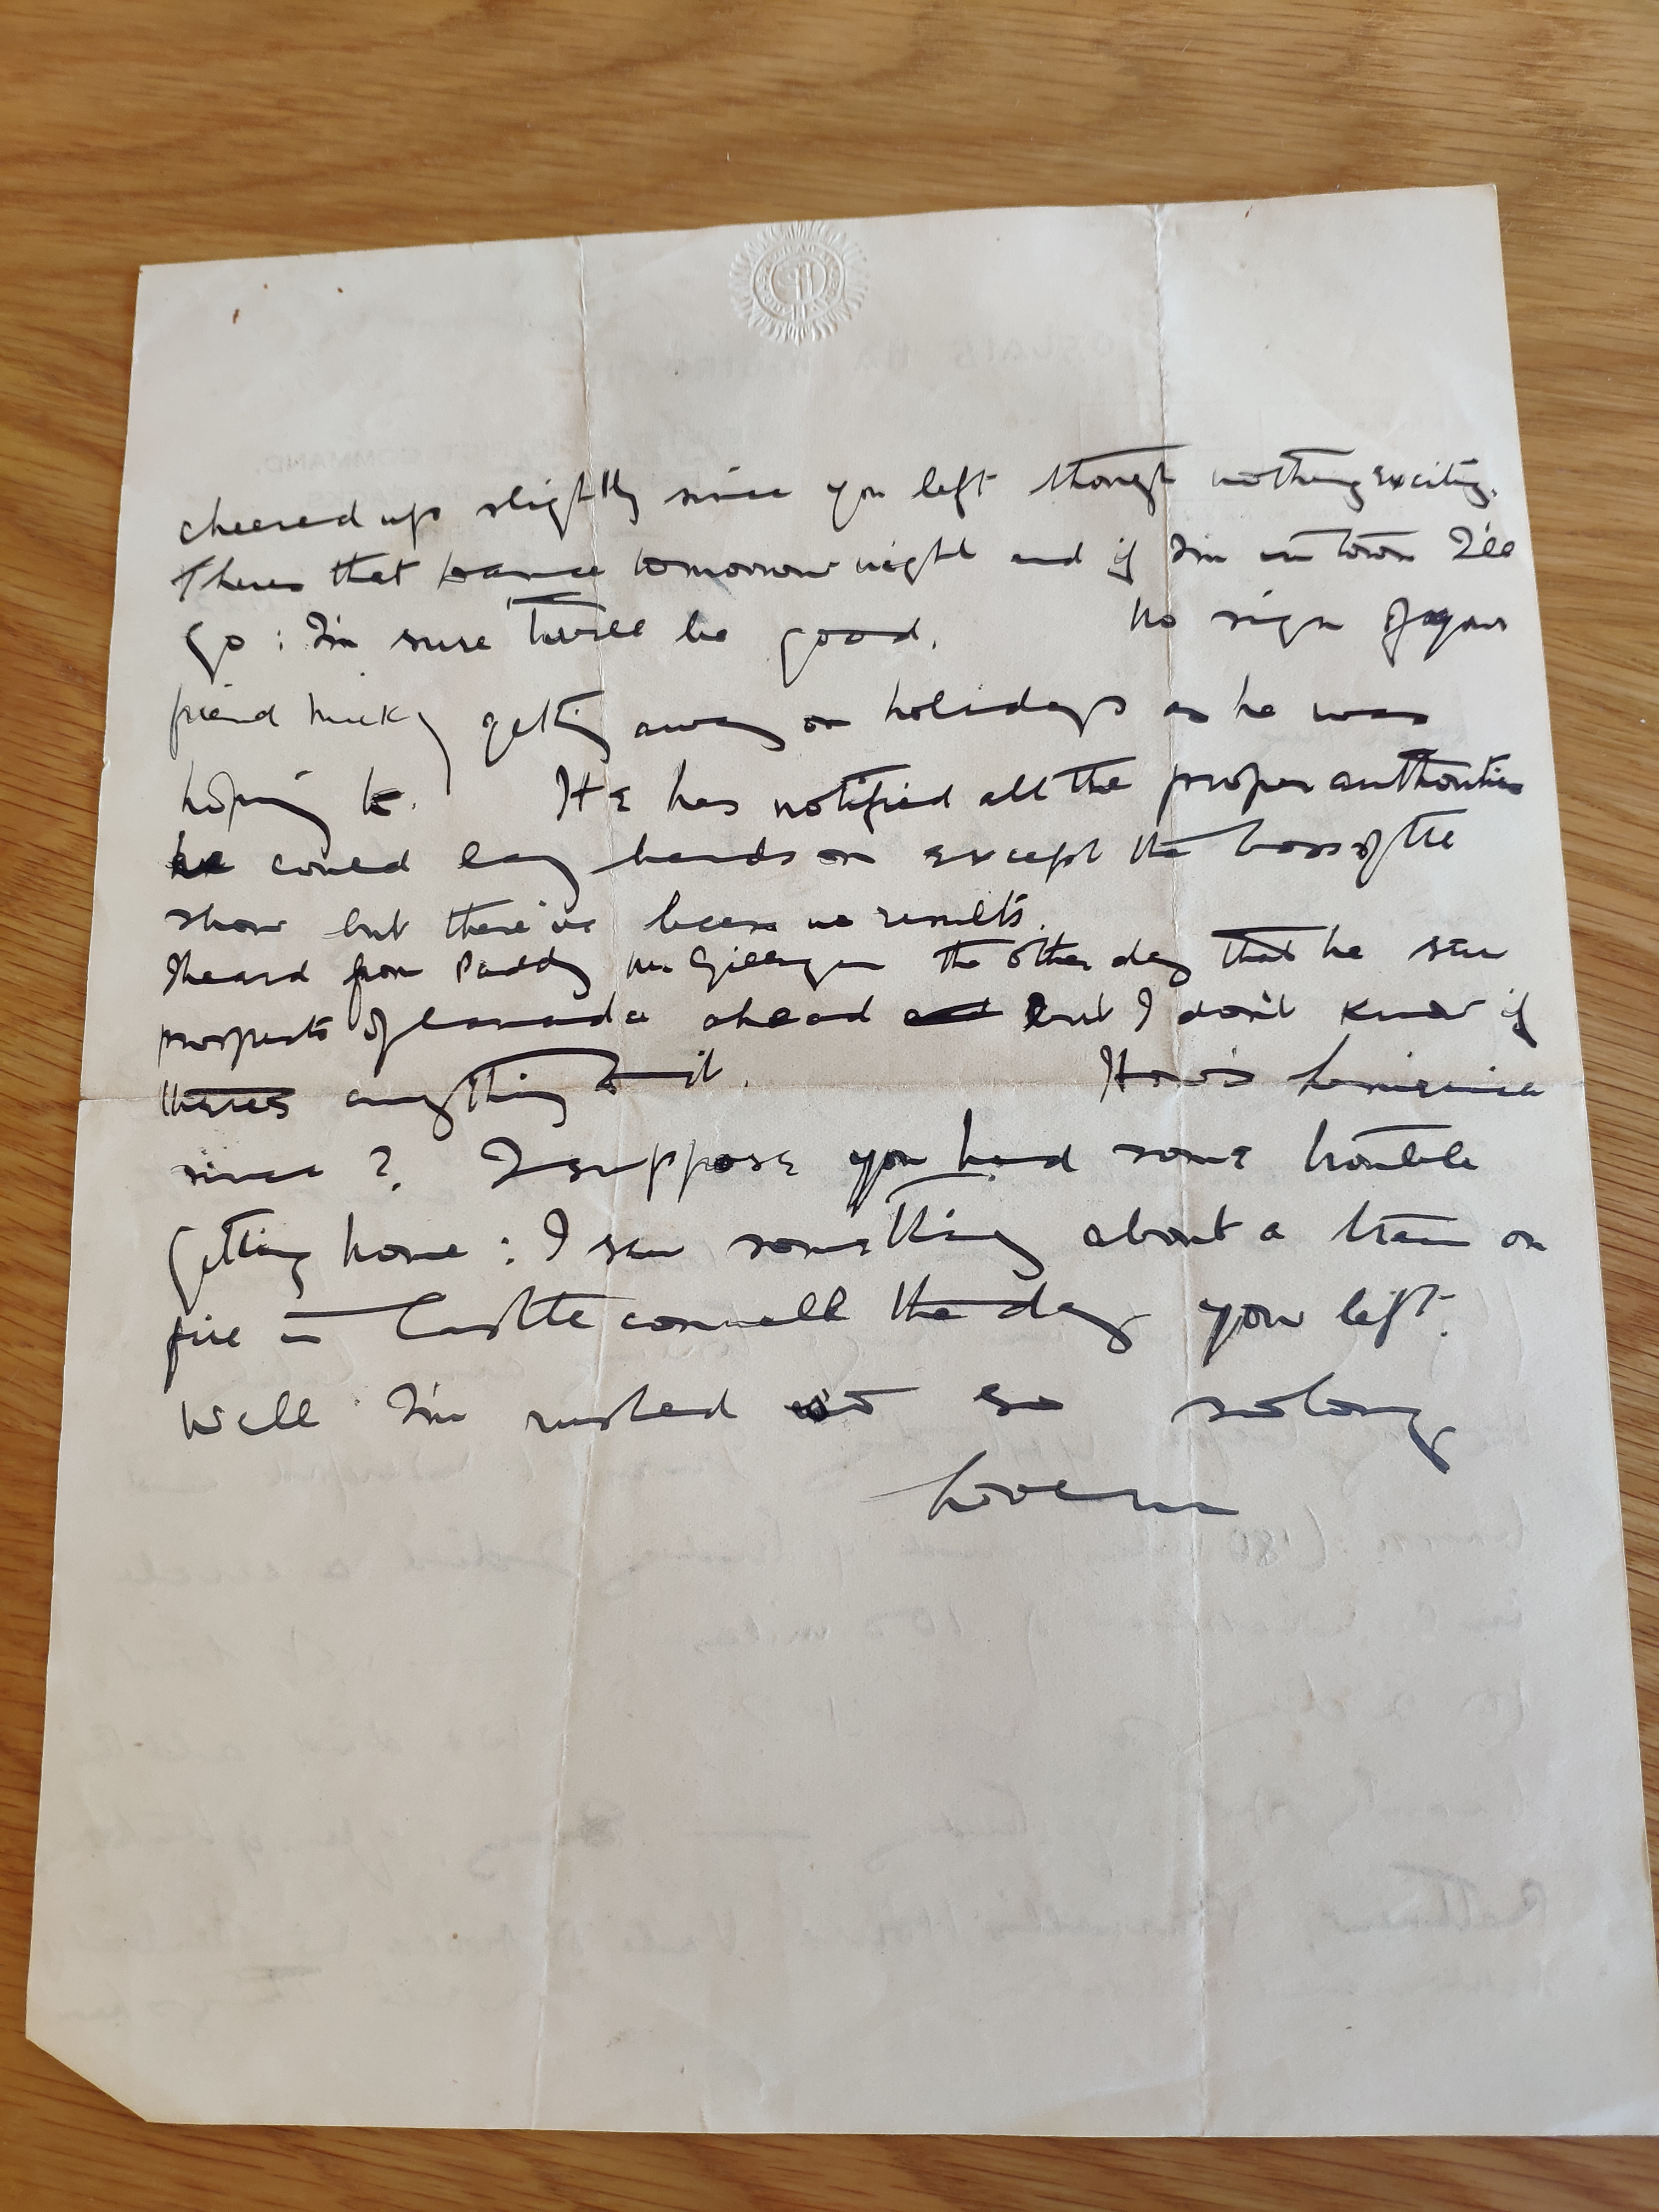 cheered up slightly since you left though nothing exciting.
Theres that dance tomorrow night and if I'm in town I'll
go : I'm sure 'twill be good. No sign of your
friend Micky getting away on holidays as he was
hoping to. He has notified all the proper authorities
he could lay hands on except the boss of the
show but there've been no results.
I heard from Paddy Mc Gilligan the other day that he saw
prospects of Canada ahead but I don't know if
theres anything to it. How's Limerick
since ? I suppose you had some trouble
getting home : I saw something about a train on
fire in Castleconnell the day you left.
Well I'm rushed so so long
COMMAND.